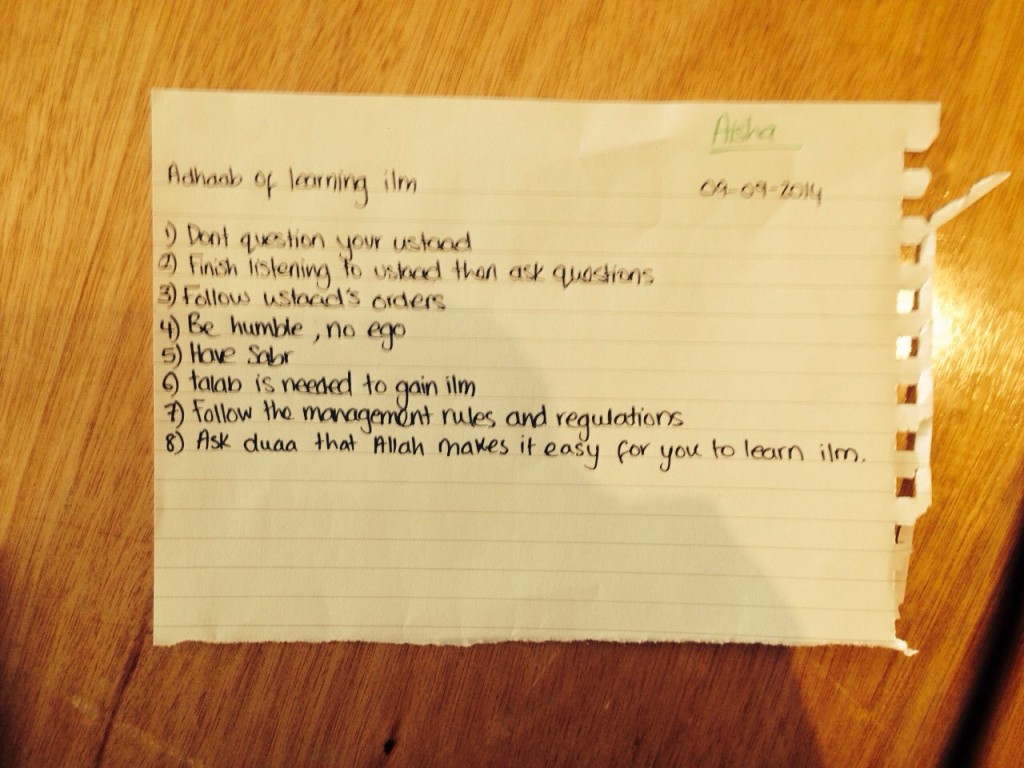 Aisha
Adhaab of learning ilm 09-09-2014
1) Dont question your ustaad
2) Finish listening to ustaad than ask questions
3) Follow ustaad's orders
4) Be humble, no ego
5) Have Sabr
6) talab is needed to gain ilm
7) Follow the management rules and regulations
8) Ask duaa that Allah makes it easy for you to learn ilm.